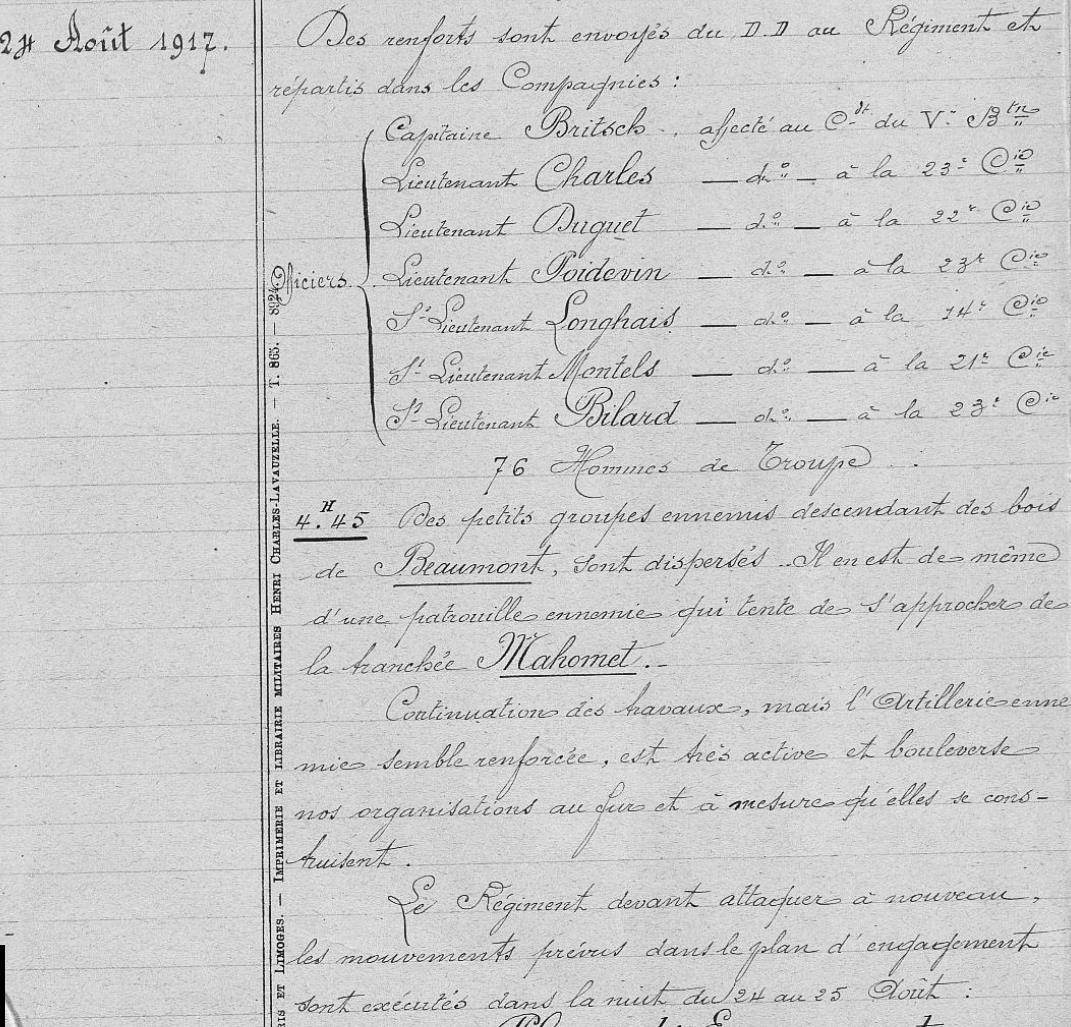 24 Août 1917.
Des renforts sont envoyés du D.D au Régiment et
répartis dans les Compagnies :
Officiers
Capitaine Britsch, affecté au Cdt du Ve Btn
Lieutenant Charles — do — à la 23e Cie
Lieutenant Duguet — do — à la 22e Cie
Lieutenant Poidevin — do — à la 23e Cie
St Lieutenant Longhais — do — à la 14e Cie
St Lieutenant Montels — do — à la 21e Cie
St Lieutenant Bilard — do — à la 23e Cie
76 Hommes de Troupe.
4.H 45 Des petits groupes ennemis descendant des bois
de Beaumont, sont dispersés. Il en est de même
d'une patrouille ennemie qui tente de s'approcher de
la tranchée Mahomet.
Continuation des travaux, mais l'Artillerie enne
mie semble renforcée, est très active et bouleverse
nos organisations au fur et à mesure qu'elles se cons-
truisent.
Le Régiment devant attaquer à nouveau,
les mouvements prévus dans le plan d'engagement
sont exécutés dans la nuit du 24 au 25 Août :
RIS ET LIMOGES. — IMPRIMERIE ET LIBRAIRIE MILITAIRES HENRI CHARLES-LAVAUZELLE. — T. 865. — 8924.